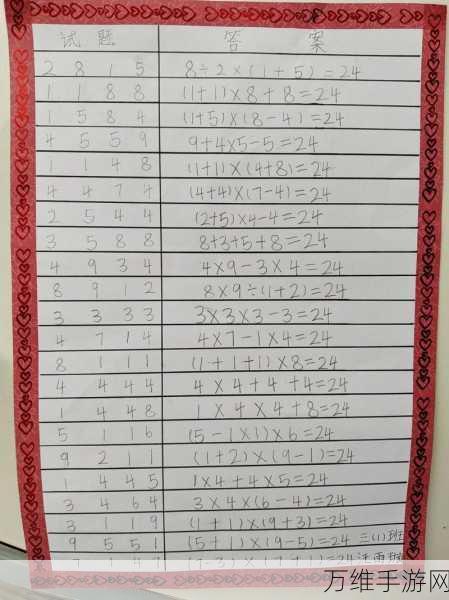 试 题 答 案
2 8 1 5 8÷2×(1+5)=24
1 1 8 8 (1+1)×8+8=24
1 5 8 4 (1+5)×(8-4)=24
4 5 5 9 9+4×5-5=24
1 1 4 8 (1+1)×(4+8)=24
4 4 7 4 (4+4)×(7-4)=24
2 5 4 4 (2+5)×4-4=24
3 5 8 8 8+3+5+8=24
4 9 3 4 4×9-3×4=24
8 9 1 2 8×9÷(1+2)=24
3 3 3 3 3×3×3-3=24
4 7 1 4 4×7-1×4=24
8 1 1 1 (1+1+1)×8=24
4 4 4 4 4×4+4+4=24
1 4 4 8 1×4×4+8=24
5 1 1 6 (5-1×1)×6=24
9 2 1 1 (1+2)×(9-1)=24
1 4 4 5 1×4+4×5=24
3 4 6 4 3×4×(6-4)=24
3 1 1 9 (1+1)×(9+3)=24
9 5 5 1 (5+1)×(9-5)=24 三(1)班
=24
万维手游网